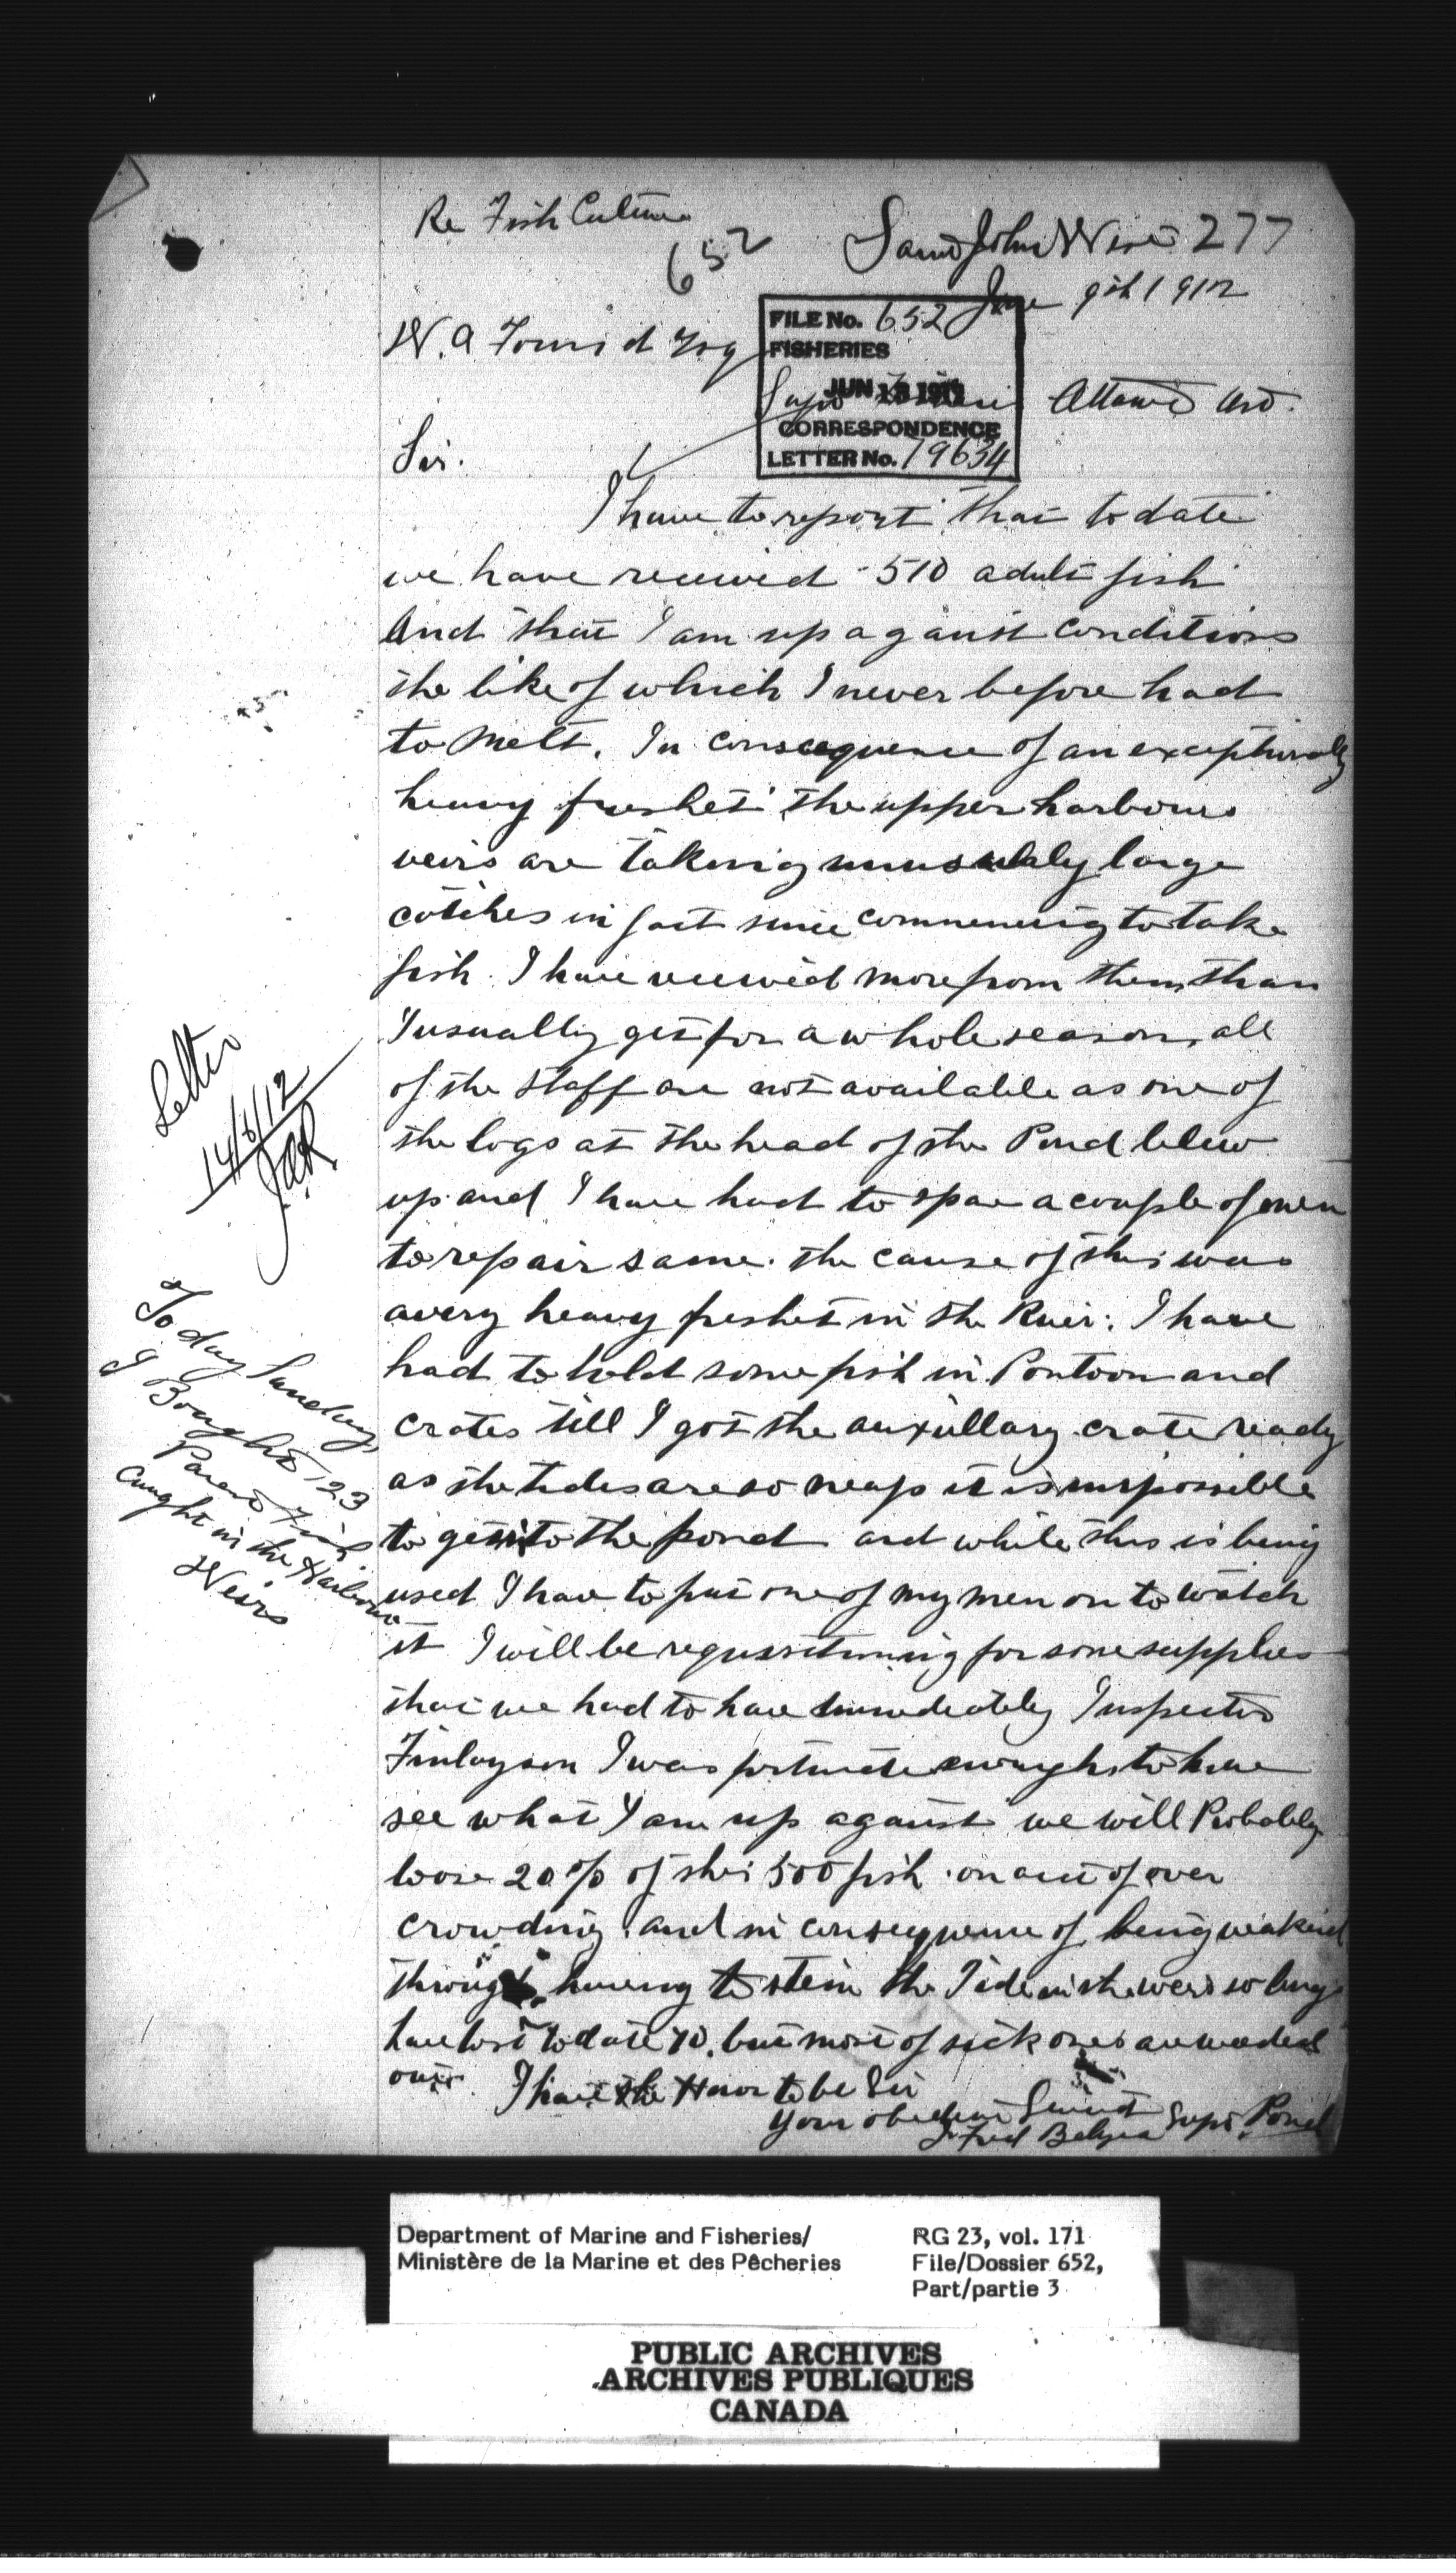 Re Fish Culture
652
Saint John West 277
June 9th 1912
FILE No. 652
FISHERIES
JUN 13 1912
CORRESPONDENCE
LETTER No. 19634
W. A Found Esq
Supt Fisheries Ottawa Ont.
Sir.
I have to report that to date
we have received 510 adult fish
And that I am up against conditions
the like of which I never before had
to meet. In consequence of an exceptionally
heavy freshet the upper harbour
weirs are taking unusually large
catches in fact since commencing to take
fish. I have received more from them than
I usually get for a whole season, all
of the staff are not available as one of
the logs at the head of the Pond blew
up and I have had to spare a couple of men
to repair same. the cause of this was
a very heavy freshet in the River. I have
had to hold some fish in Pontoon and
crates till I got the auxullary crate ready
as the tides are so neap it is impossible
to get into the pond and while this is being
used I have to put one of my men on to watch
it I will be requisitioning for some supplies
that we had to have immediately Inspector
Finlayson I was fortunate enough to have
see what I am up against we will Probably
loose 20% of the 500 fish on acct of over
crowding and in consequence of being weakened
through having to stem the Tide in the weirs so long
have lost to date 70. but most of sick ones are weeded
out. I have the Honor to be Sir
Your obedient Servant
J Fred Belyea Supt Pond
Letter
14/6/12
JAR
Today Sunday,
I Bought 123
Parent Fish
Caught in the Harbour
Weirs
Department of Marine and Fisheries/
Ministère de la Marine et des Pêcheries
RG 23, vol. 171
File/Dossier 652,
Part/partie 3
PUBLIC ARCHIVES
ARCHIVES PUBLIQUES
CANADA